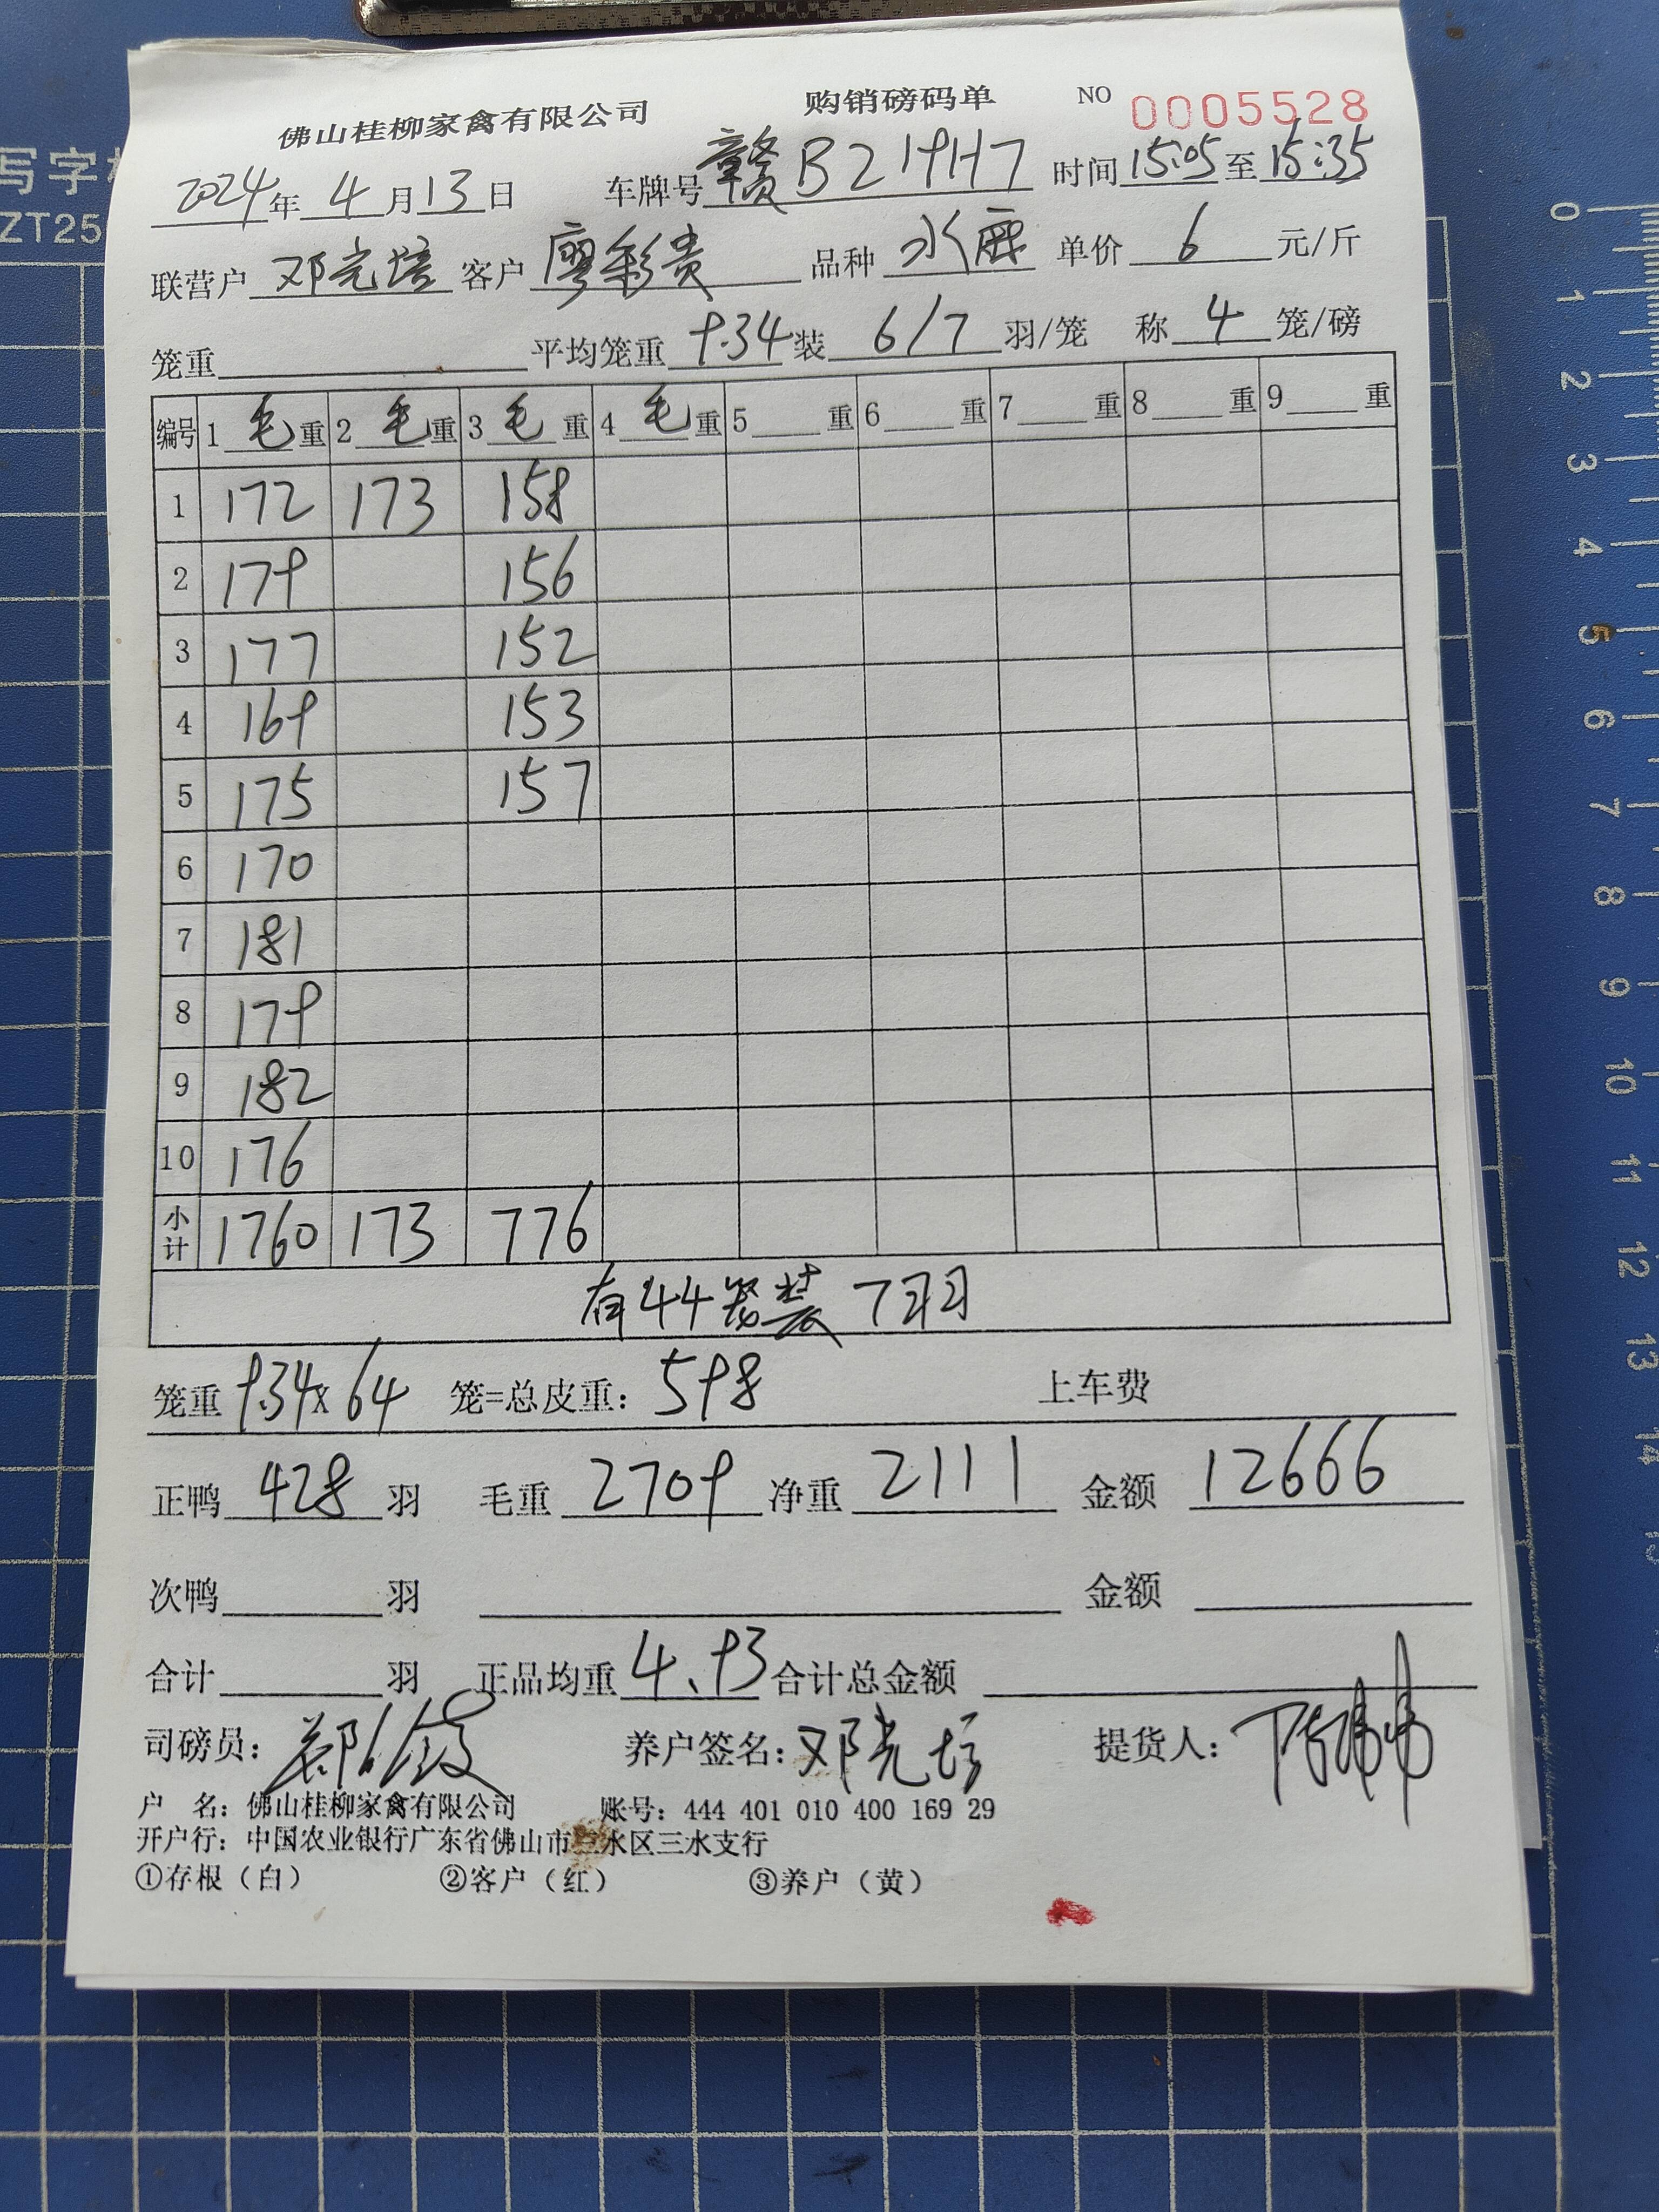 写字
ZT25
佛山桂柳家禽有限公司 购销磅码单 NO 0005528
2024年4月13日 车牌号赣B219H7 时间15:05至15:35
联营户 邓光培 客户 廖彩贵 品种 水麻 单价 6 元/斤
笼重 平均笼重 9.34 装 6/7 羽/笼 称 4 笼/磅
编号 1 毛 重 2 毛 重 3 毛 重 4 毛 重 5 重 6 重 7 重 8 重 9 重
1 172 173 158
2 179 156
3 177 152
4 169 153
5 175 157
6 170
7 181
8 179
9 182
10 176
小计 1760 173 776
有44笼装7羽
笼重 9.34×64 笼=总皮重: 598 上车费
正鸭 428 羽 毛重 2709 净重 2111 金额 12666
次鸭 羽 金额
合计 羽 正品均重 4.93 合计总金额
司磅员: 养户签名: 邓光培 提货人:
户 名: 佛山桂柳家禽有限公司 账号: 444 401 010 400 169 29
开户行: 中国农业银行广东省佛山市三水区三水支行
①存根（白） ②客户（红） ③养户（黄）
0
1
2
3
4
5
6
7
8
9
10
11
12
13
14
15